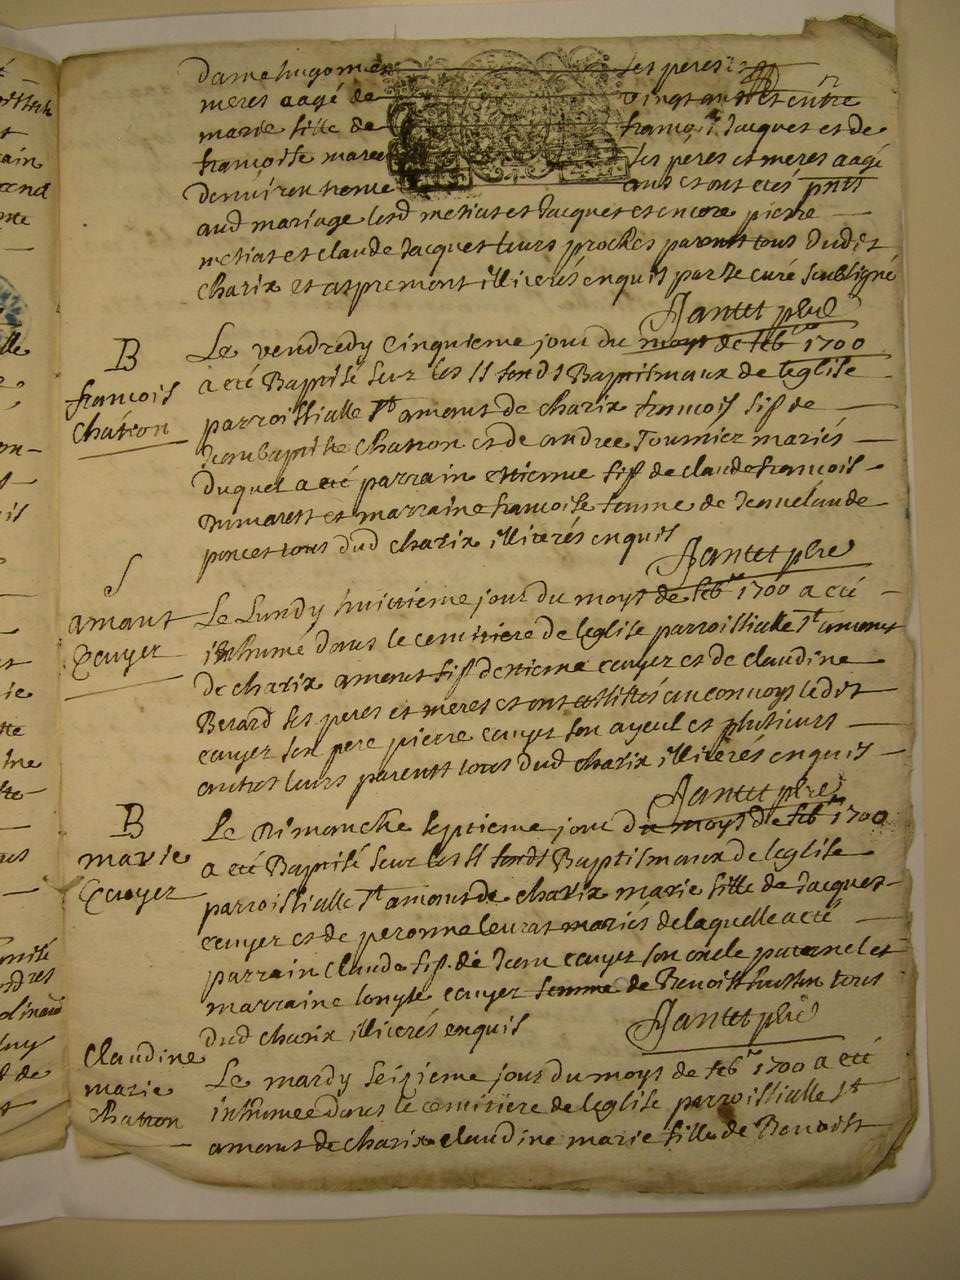 dame hugonier ses peres et
meres aagé de vingt ans et entre
marie fille de françois Jacquet et de
françoise marec ses peres et meres aagé
denviron trente ans et ont etés pnts
aud mariage lesd metiat et Jacquet et encore pierre
metiat et claude Jacquet leurs proches parentt tous dudit
charix et aspremont illiterés enquis par le curé soubsigné
Jantet pbre
B
françois
Chatron
Le vendredy Cinquieme jour du moys de feb 1700
a eté Baptisé sur les ss fonds Baptismaux de leglise
parroissialle St amant de charix françois fils de
Jean baptiste Chatron et de andree Tournier mariés
duquel a eté parrain ettienne fils de claude françois
Dumarest et marraine françoise femme de Jean claude
poncet tous dud charix illiterés enquis
Jantet pbre
S
amant
Ecuyer
Le Lundy huitieme jour du moys de feb 1700 a eté
inhumé dans le cemitiere de leglise parroissialle St amant
de charix amant fils dettienne ecuyer et de claudine
Berard ses peres et meres et ont assistés au convoys ledit
ecuyer son pere pierre ecuyer son ayeul et plusieurs
autres leurs parentt tous dud charix illiterés enquis
Jantet pbre
B
marie
Ecuyer
Le Dimanche septieme jour du moys de feb 1700
a eté Baptisé sur les ss fonds Baptismaux de leglise
parroissialle St amant de charix marie fille de Jacques
ecuyer et de peronne leurat mariés de laquelle a eté
parrain Claude fils de Jean ecuyer son oncle paternel et
marraine ecuyer femme de Benoist tous
dud charix illiterés enquis
Jantet pbre
Claudine
marie
Chatron
Le mardy seizieme jour du moys de feb 1700 a eté
inhumee dans le cemitiere de leglise parroissialle St
amant de charix claudine marie fille de Benoist